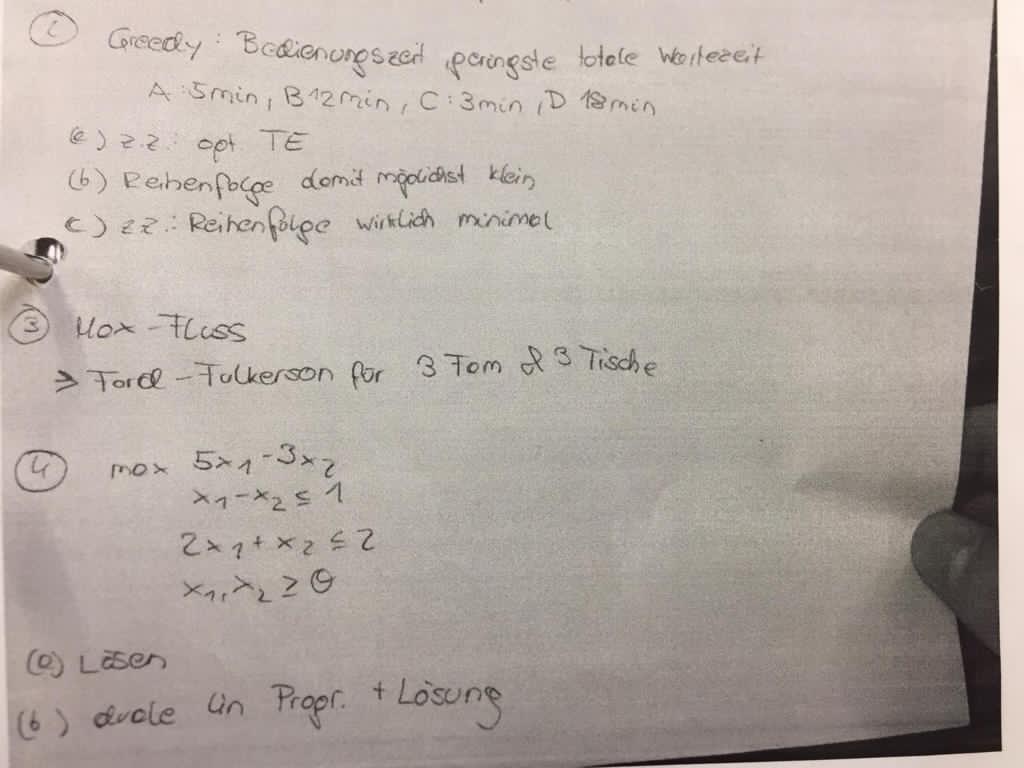 ② Greedy : Bedienungszeit, geringste totale Wartezeit
A : 5min, B 12min, C : 3min, D 18min
(a) z.z.: opt. TE
(b) Reihenfolge damit möglichst klein
(c) z.z.: Reihenfolge wirklich minimal
③ Max-Fluss
⇒ Ford-Fulkerson für 3 Fam & 3 Tische
④ max 5x₁-3x₂
x₁-x₂ ≤ 1
2x₁+x₂ ≤ 2
x₁, x₂ ≥ 0
(a) Lösen
(b) duale lin Progr. + Lösung